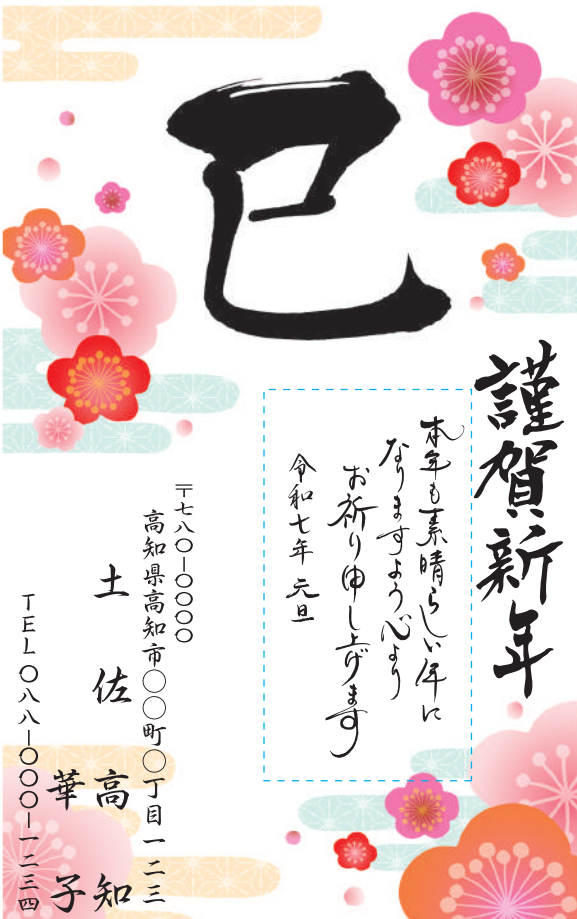 巳
謹賀新年
本年も素晴らしい年に
なりますよう心より
お祈り申し上げます
令和七年 元旦
〒七八〇-〇〇〇〇
高知県高知市〇〇町〇丁目一二三
土佐 高知
華子
TEL〇八八-〇〇〇-一二三四